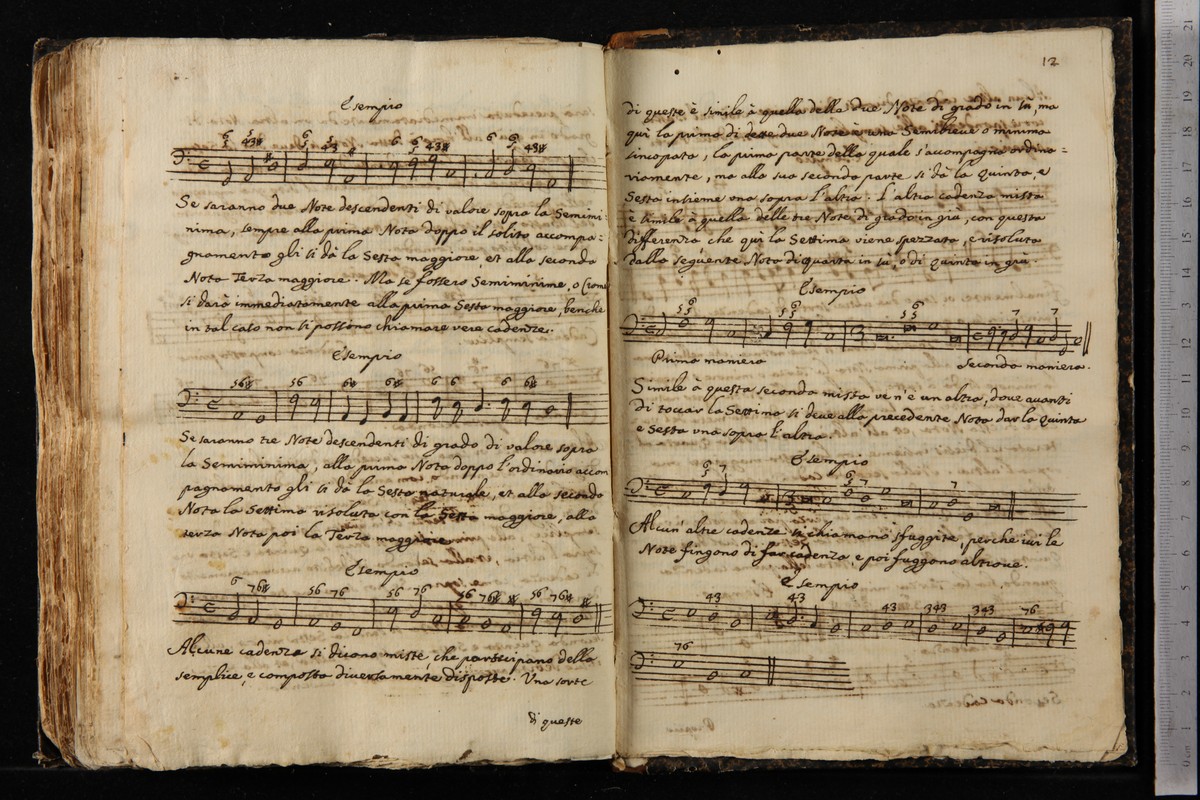 Esempio
Se saranno due Note descendenti di valore sopra la Semimi=
nima, sempre alla prima Nota doppo il solito accompa=
gnamento gli si dà la Sesta maggiore, et alla seconda
Nota Terza maggiore. Ma se fossero Semiminime, o Crome
si darà immediatamente alla prima Sesta maggiore, benche
in tal caso non si possono chiamare vere cadenze.
Esempio
Se saranno tre Note descendenti di grado di valore sopra
la Semiminima, alla prima Nota doppo l'ordinario accom
pagnamento gli si dà la Sesta naturale, et alla seconda
Nota la Settima risoluta con la Sesta maggiore, alla
terza Nota poi la Terza maggiore
Esempio
Alcune cadenze si dicono miste che participano della
semplice, e composta diversamente disposte. Una sorte
di queste
12
di queste è simile à quella della due Note di grado in sù, ma
quì la prima di dette due Note è una Semibreve o minima
sincopata, la prima parte della quale s'accompagna ordina=
riamente, ma alla sua seconda parte si dà la Quinta, e
Sesta insieme una sopra l'altra. L'altra cadenza mista
è simile à quella delle tre Note di grado in giù, con questa
differenza che quì la Settima viene spezzata, e risoluta
dalla seguente Nota di quarta in sù, ò di quinta in giù.
Esempio
Prima maniera
Seconda maniera.
Simile à questa seconda mista ve n'è un altra, dove avanti
di toccar la Settima si deve alla precedente Nota dar la Quinta
e Sesta una sopra l'altra
Esempio
Alcun'altre cadenze si chiamano sfuggite, perche ivi le
Note fingono di far cadenza, e poi fuggono altrove.
Esempio